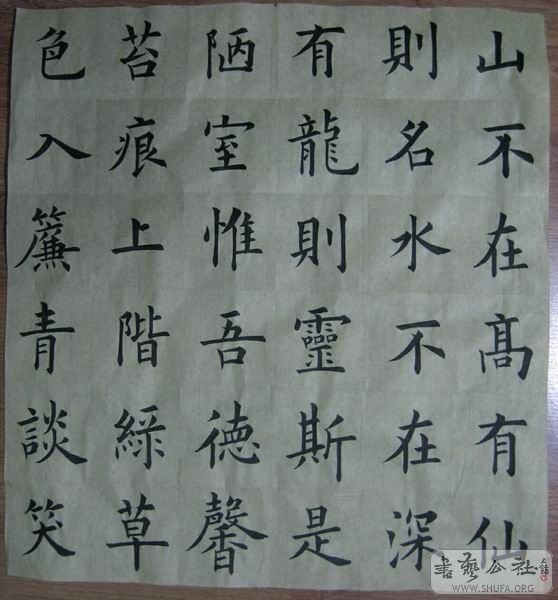 山不在髙有仙
則名水不在深
有龍則靈斯是
陋室惟吾德馨
苔痕上階綠草
色入簾青談笑
書藝公社
WWW.SHUFA.ORG